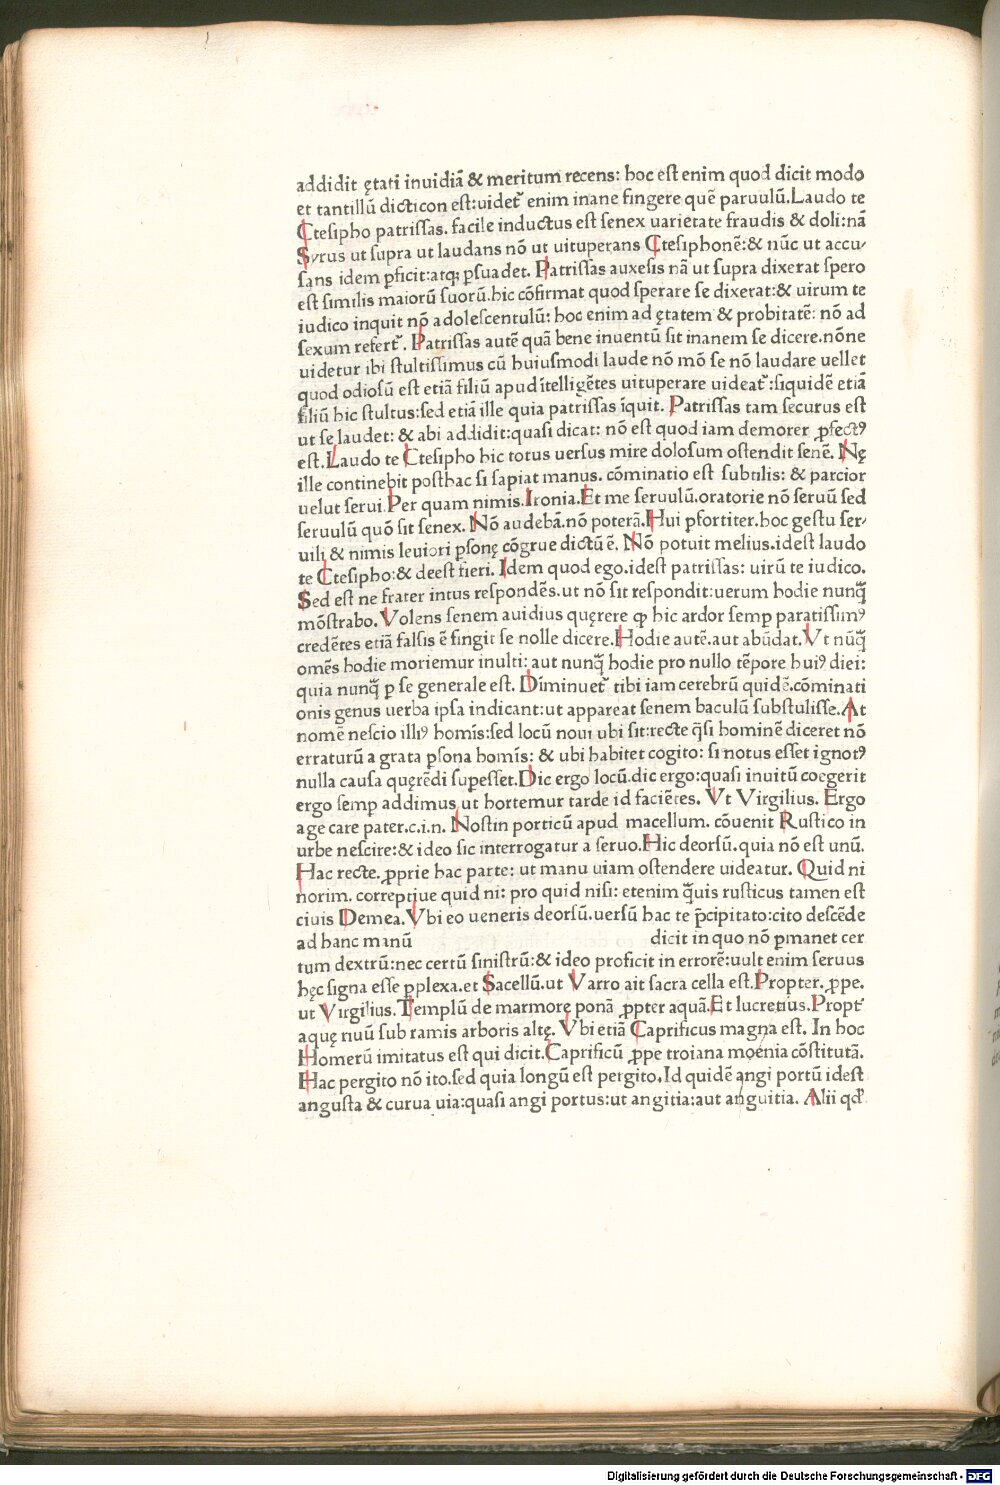 addidit ętati inuidiā & meritum recens: hoc eſt enim quod dicit modo
et tantillū dicticon eſt:uidetʳ enim inane fingere quē paruulū.Laudo te
Cteſipho patriſſas. facile inductus eſt ſenex uarietate fraudis & doli:nā
Syrus ut ſupra ut laudans nō ut uituperans Cteſiphonē:& nūc ut accu-
ſans idem ꝑficit:atqꝫ ꝑſuadet. Patriſſas auxeſis nā ut ſupra dixerat ſpero
eſt ſimilis maiorū ſuorū.hic cōfirmat quod ſperare ſe dixerat:& uirum te
iudico inquit nō adoleſcentulū: hoc enim ad ętatem & probitatē: nō ad
ſexum refertʳ. Patriſſas autē quā bene inuentū ſit inanem ſe dicere.nōne
uidetur ibi ſtultiſſimus cū huiuſmodi laude nō mō ſe nō laudare uellet
quod odioſū eſt etiā filiū apud ītelligētes uituperare uideatʳ:ſiquidē etiā
filiū hic ſtultus:ſed etiā ille quia patriſſas īquit. Patriſſas tam ſecurus eſt
ut ſe laudet: & abi addidit:quaſi dicat: nō eſt quod iam demorer ꝓfectꝰ
eſt.Laudo te Cteſipho hic totus uerſus mire doloſum oſtendit ſenē. Nę
ille continebit poſthac ſi ſapiat manus. cōminatio eſt ſubtilis: & parcior
uelut ſerui.Per quam nimis.Ironia.Et me ſeruulū.oratorie nō ſeruū ſed
ſeruulū quō ſit ſenex. Nō audebā.nō poterā.Hui ꝑfortiter.hoc geſtu ſer-
uili & nimis leuiori ꝑſonę cōgrue dictū ē. Nō potuit melius.ideſt laudo
te Cteſipho:& deeſt fieri. Idem quod ego.ideſt patriſſas: uirū te iudico.
Sed eſt ne frater intus reſpondēs.ut nō ſit reſpondit:uerum hodie nunq̄
mōſtrabo.Volens ſenem auidius quęrere ꝙ hic ardor ſemꝑ paratiſſimꝰ
credētes etiā falſis ē fingit ſe nolle dicere.Hodie autē.aut abūdat.Vt nūq̄
omēs hodie moriemur inulti: aut nunq̄ hodie pro nullo tēpore huiꝰ diei:
quia nunq̄ ꝑ ſe generale eſt. Diminuetʳ tibi iam cerebrū quidē.cōminati
onis genus uerba ipſa indicant:ut appareat ſenem baculū ſubſtuliſſe.At
nomē neſcio illiꝰ homīs:ſed locū noui ubi ſit:recte q̄ſi hominē diceret nō
erraturū a grata ꝑſona homīs: & ubi habitet cogito: ſi notus eſſet ignotꝰ
nulla cauſa quęrēdi ſuꝑeſſet.Dic ergo locū.dic ergo:quaſi inuitū coegerit
ergo ſemꝑ addimus ut hortemur tarde id faciētes. Vt Virgilius. Ergo
age care pater.c.i.n. Noſtin porticū apud macellum. cōuenit Ruſtico in
urbe neſcire:& ideo ſic interrogatur a ſeruo.Hic deorſū.quia nō eſt unū.
Hac recte.ꝓprie hac parte: ut manu uiam oſtendere uideatur. Quid ni
norim. correptiue quid ni: pro quid niſi: etenim q̄uis ruſticus tamen eſt
ciuis Demea.Vbi eo ueneris deorſū.uerſū hac te p̄cipitato:cito deſcēde
ad hanc manū dicit in quo nō ꝑmanet cer
tum dextrū:nec certū ſiniſtrū:& ideo proficit in errorē:uult enim ſeruus
hęc ſigna eſſe ꝑplexa.et Sacellū.ut Varro ait ſacra cella eſt.Propter.ꝓpe.
ut Virgilius. Templū de marmore ponā ꝓpter aquā.Et lucretius.Proptʳ
aquę riuū ſub ramis arboris altę. Vbi etiā Caprificus magna eſt. In hoc
Homerū imitatus eſt qui dicit.Caprificū ꝓpe troiana moenia cōſtitutā.
Hac pergito nō ito.ſed quia longū eſt pergito.Id quidē angi portū ideſt
anguſta & curua uia:quaſi angi portus:ut angitia:aut anguitia. Alii qd̓
Digitalisierung gefördert durch die Deutsche Forschungsgemeinschaft - DFG